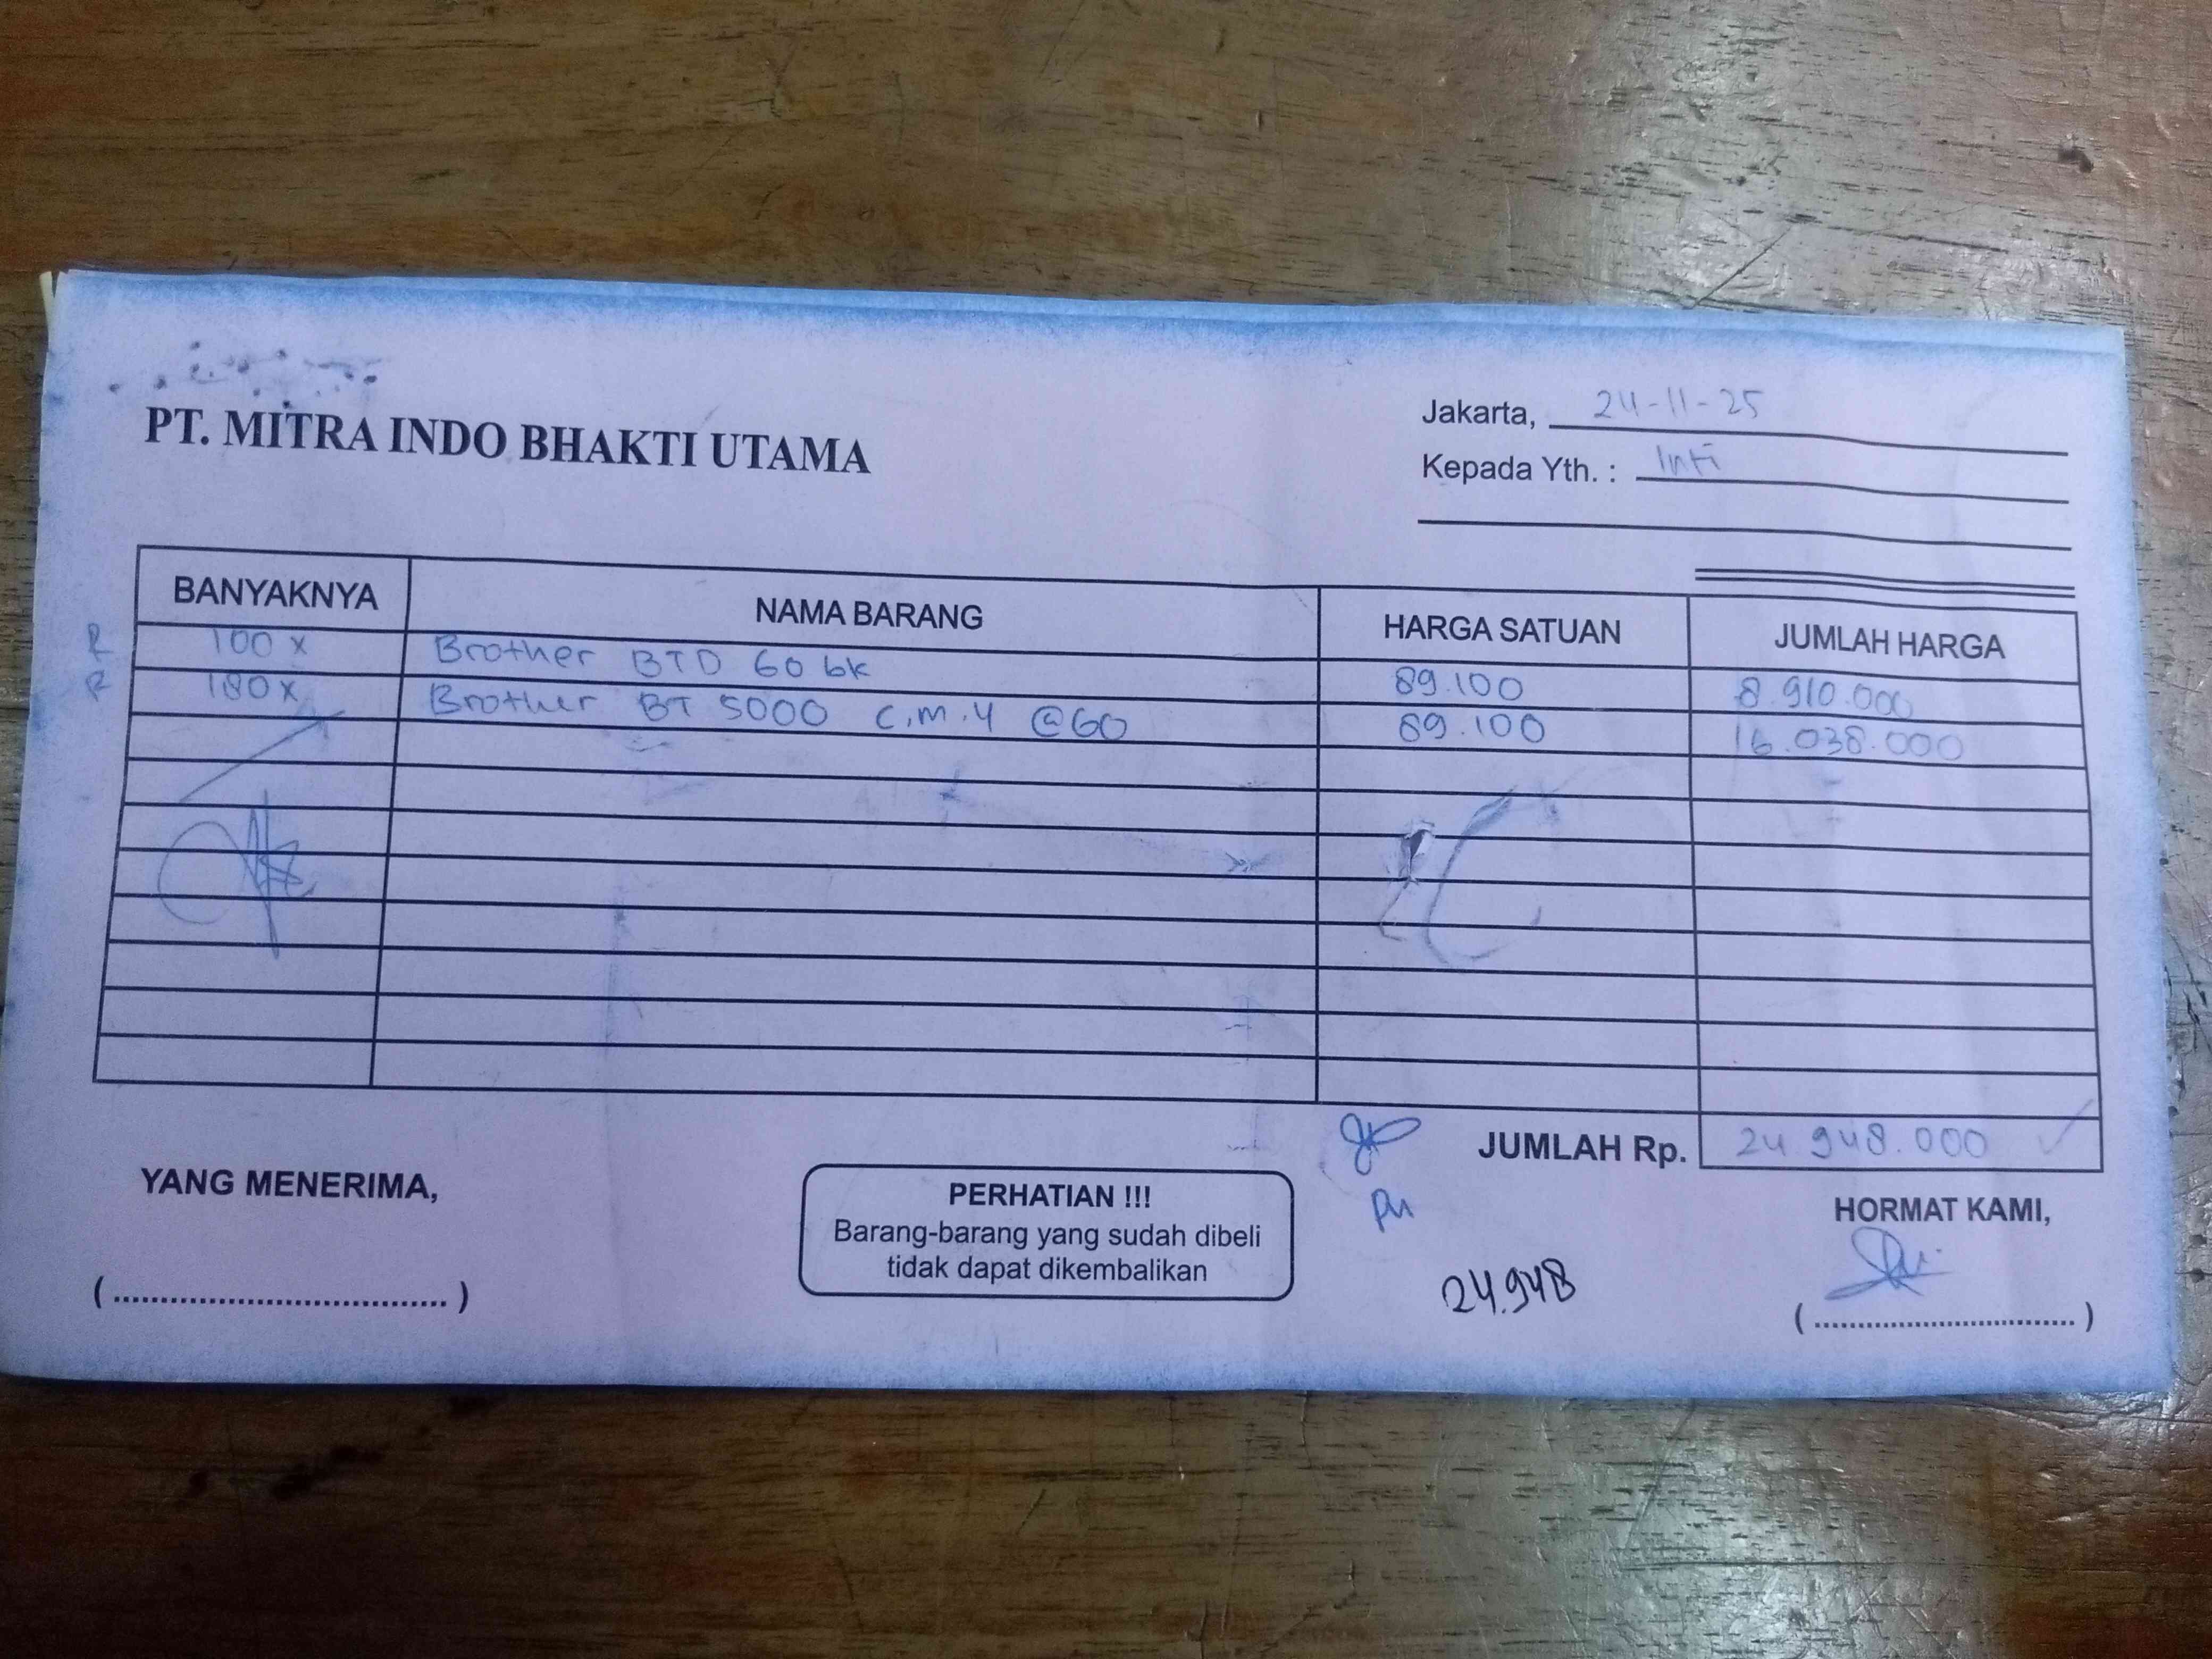 PT. MITRA INDO BHAKTI UTAMA
Jakarta, 24-11-25
Kepada Yth. : Inti
BANYAKNYA NAMA BARANG HARGA SATUAN JUMLAH HARGA
R 100 x Brother BTD 60 bk 89.100 8.910.000
R 180 x Brother BT 5000 C.M.Y @60 89.100 16.038.000
JUMLAH Rp. 24.948.000
YANG MENERIMA,
PERHATIAN !!!
Barang-barang yang sudah dibeli
tidak dapat dikembalikan
24.948
HORMAT KAMI,
(....................................)
(....................................)